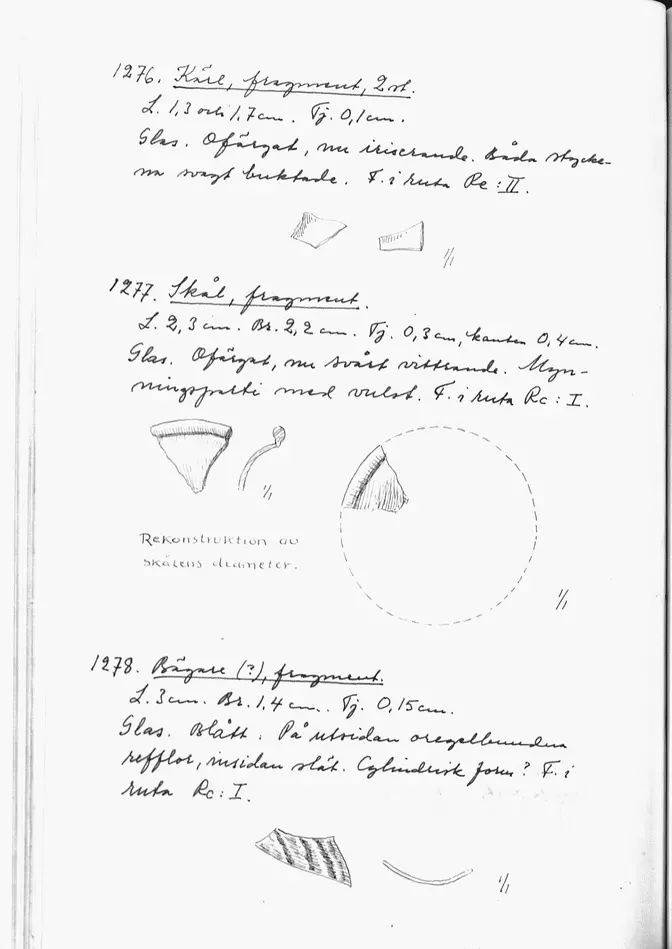 1276. Kärl, fragment, 2 st.
L. 1,3 och 1,7 cm. Tj. 0,1 cm.
Glas. Ofärgat, nu iriserande. Båda stycke-
na svagt buktade. F. i ruta Rc : II.
1/1
1277. Skål, fragment.
L. 2,3 cm. Br. 2,2 cm. Tj. 0,3 cm, kanten 0,4 cm.
Glas. Ofärgat, nu svårt vittrande. Myn-
ningsparti med vulst. F. i ruta Rc : I.
1/1
Rekonstruktion av
skålens diameter.
1/1
1278. Bägare (?), fragment.
L. 3 cm. Br. 1,4 cm. Tj. 0,15 cm.
Glas. Blått. På utsidan oregelbundna
refflor, insidan slät. Cylindrisk form? F. i
ruta Rc : I.
1/1